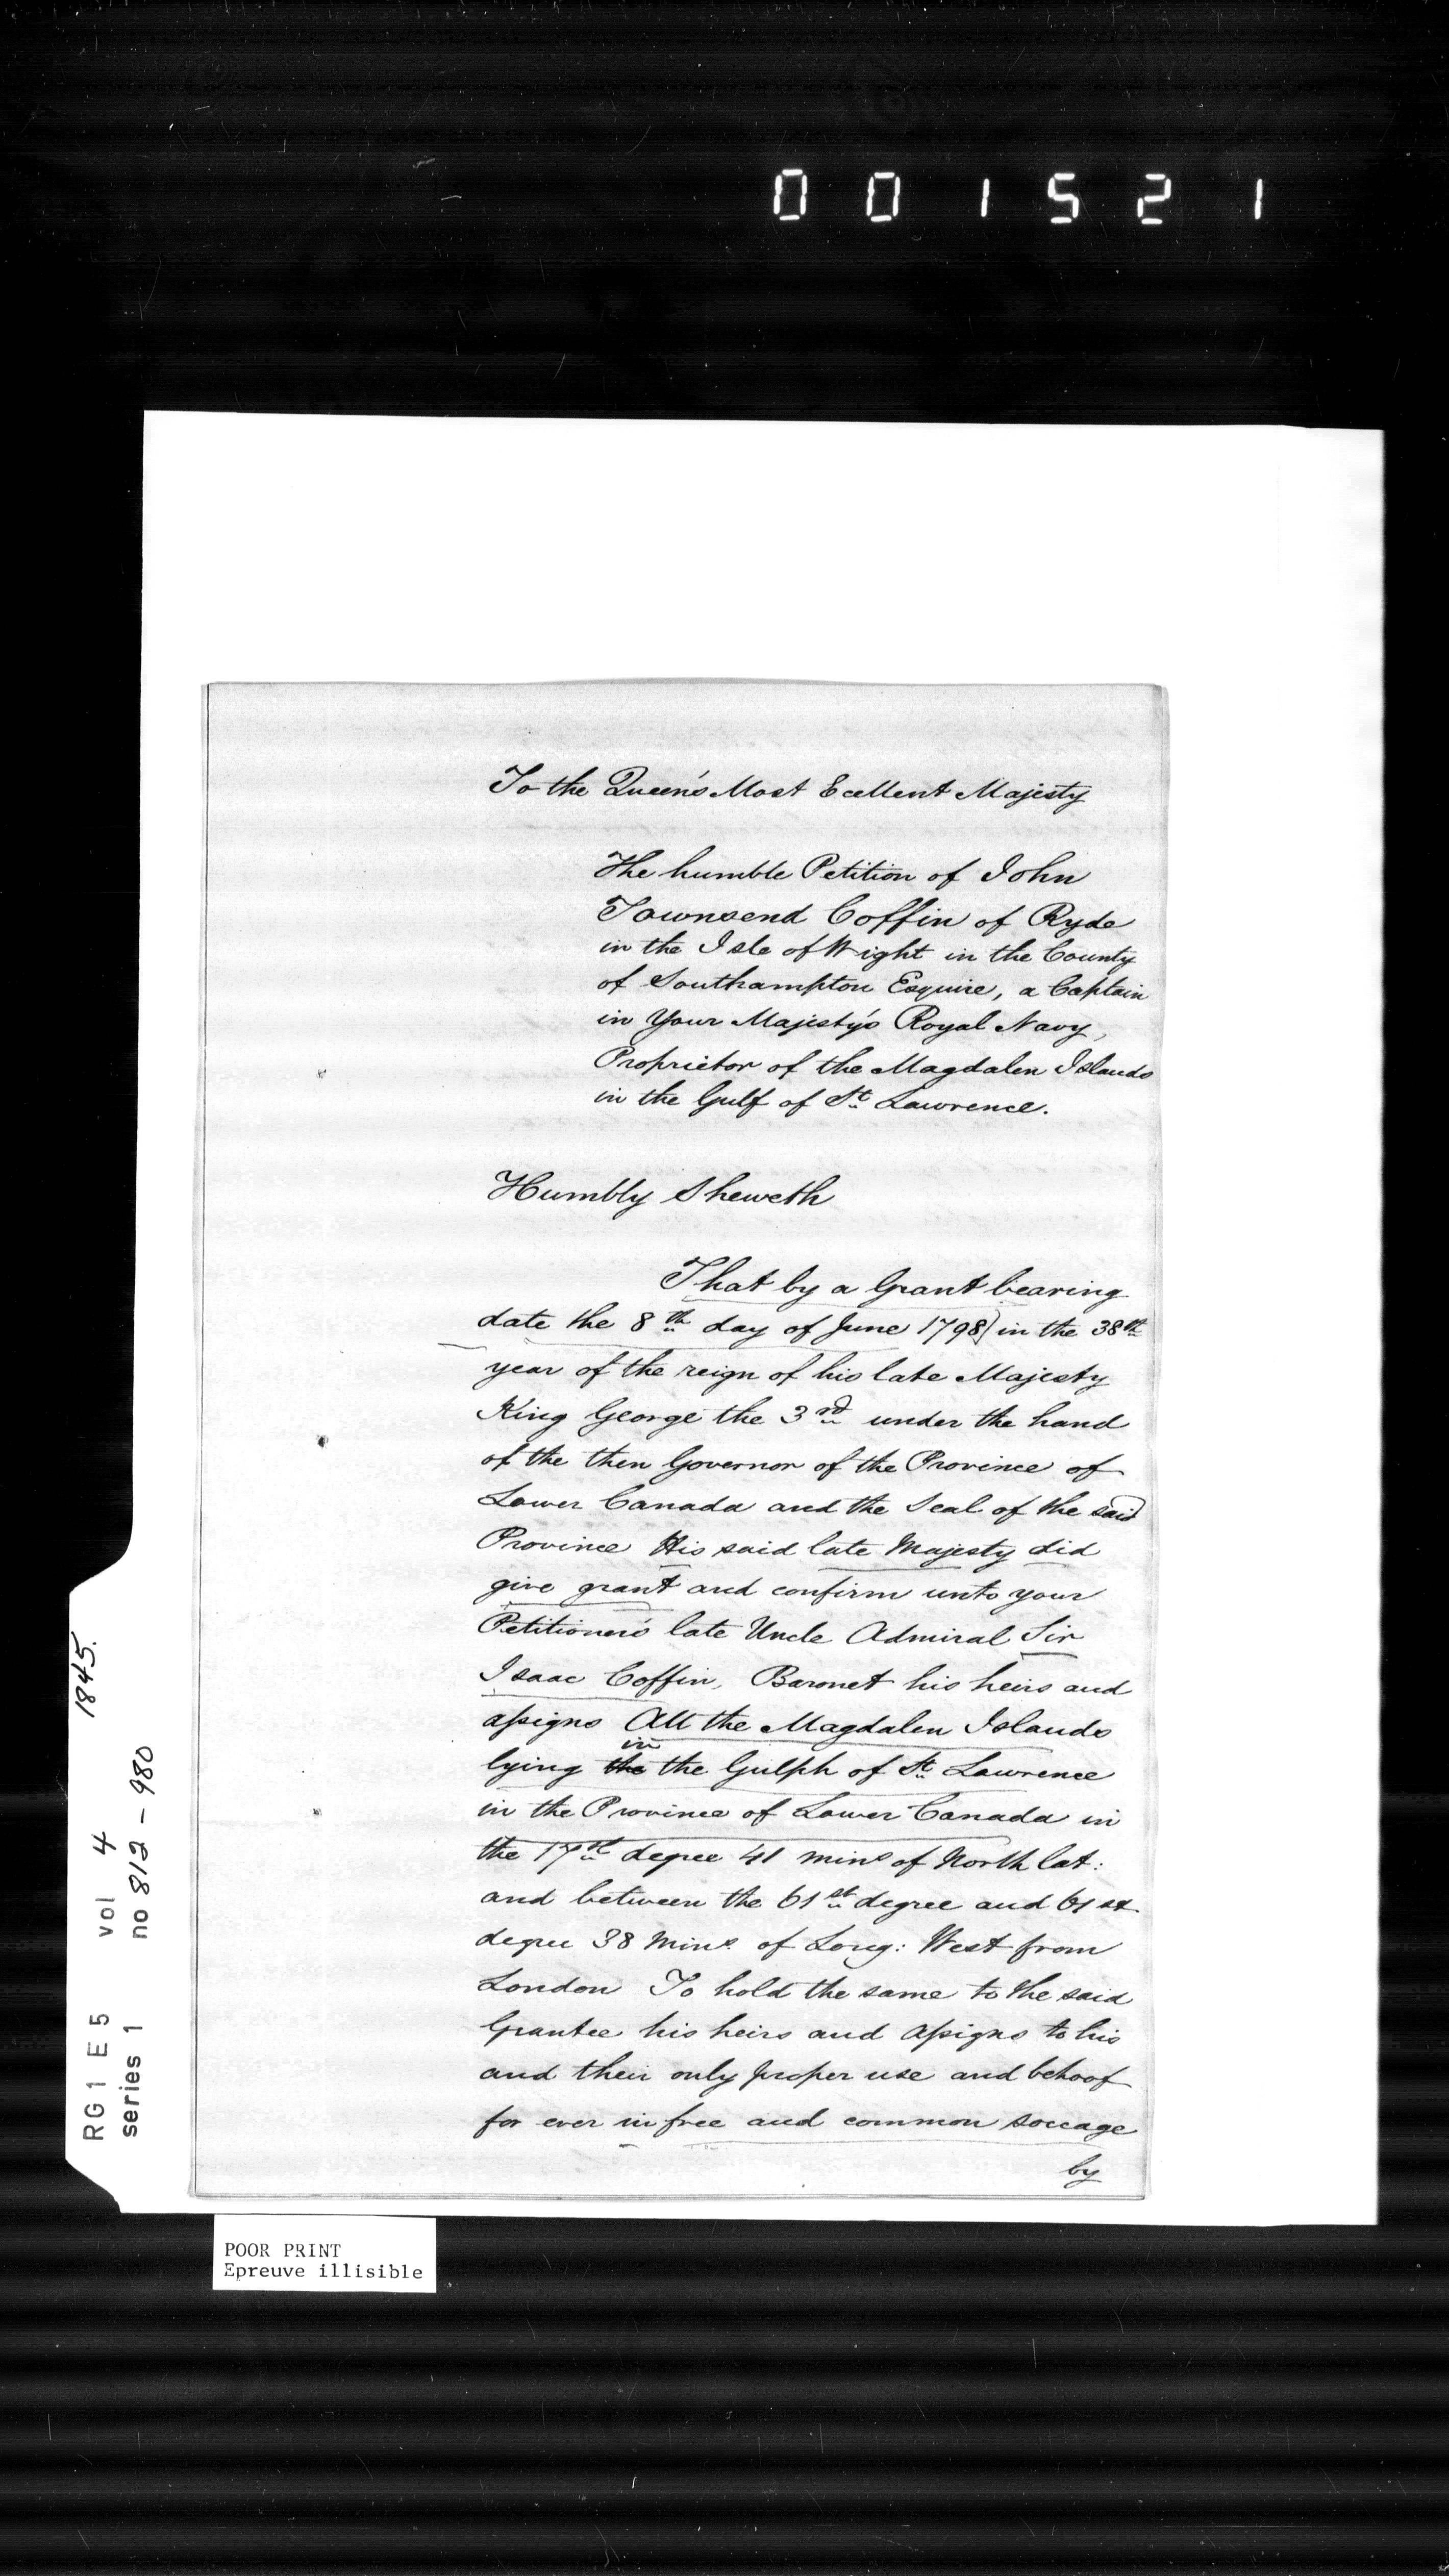 001521
To the Queen's Most Ecellent Majesty
The humble Petition of John
Townsend Coffin of Ryde
in the Isle of Wight in the County
of Southampton Esquire, a Captain
in Your Majesty's Royal Navy,
Proprietor of the Magdalen Islands
in the Gulf of St Lawrence.
Humbly Sheweth
That by a Grant bearing
date the 8th day of June 1798) in the 38th
year of the reign of his late Majesty
King George the 3rd under the hand
of the then Governor of the Province of
Lower Canada and the Seal of the said
Province His said late Majesty did
give grant and confirm unto your
Petitioner's late Uncle Admiral Sir
Isaac Coffin, Baronet his heirs and
assigns All the Magdalen Islands
in
lying the the Gulph of St Lawrence
in the Province of Lower Canada in
the 17th degree 41 mins of North lat:
and between the 61st degree and 61st
degree 38 Mins of Long: West from
London To hold the same to the said
Grantee his heirs and assigns to his
and their only proper use and behoof
for ever in free and common soccage
by
RG 1 E 5 vol 4 1845.
series 1 no 812-980
POOR PRINT
Epreuve illisible